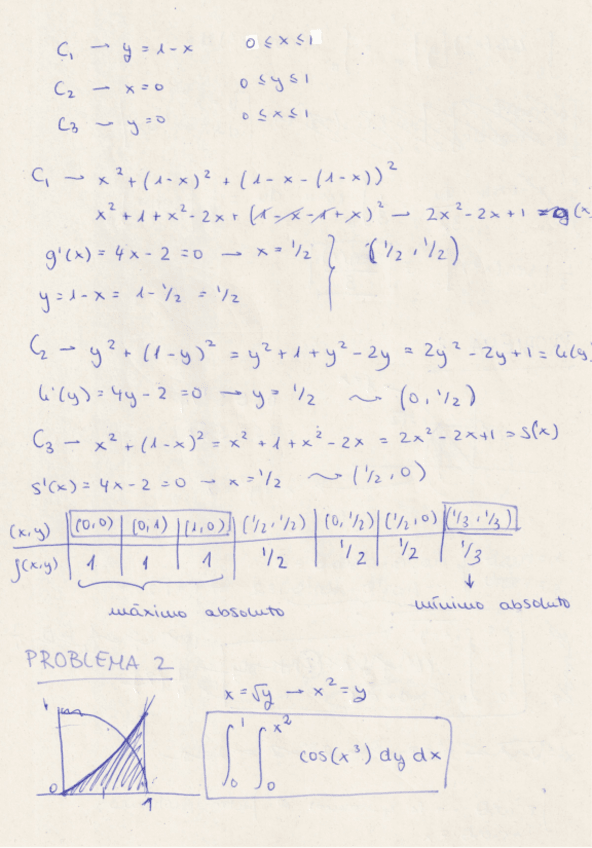 C₁ → y = 1-x 0 ≤ x ≤ 1
C₂ → x = 0 0 ≤ y ≤ 1
C₃ → y = 0 0 ≤ x ≤ 1
C₁ → x² + (1-x)² + (1-x-(1-x))²
x² + 1 + x² - 2x + (1-x-1+x)² → 2x² - 2x + 1 = g(x
g'(x) = 4x - 2 = 0 → x = 1/2 } (1/2, 1/2)
y = 1-x = 1 - 1/2 = 1/2
C₂ → y² + (1-y)² = y² + 1 + y² - 2y = 2y² - 2y + 1 = h(y)
h'(y) = 4y - 2 = 0 → y = 1/2 ⤳ (0, 1/2)
C₃ → x² + (1-x)² = x² + 1 + x² - 2x = 2x² - 2x + 1 = s(x)
s'(x) = 4x - 2 = 0 → x = 1/2 ⤳ (1/2, 0)
(x,y) | (0,0) | (0,1) | (1,0) | (1/2, 1/2) | (0, 1/2) | (1/2, 0) | (1/3, 1/3)
f(x,y) | 1 | 1 | 1 | 1/2 | 1/2 | 1/2 | 1/3
máximo absoluto mínimo absoluto
PROBLEMA 2
x = √y → x² = y
∫₀¹ ∫₀^x² cos(x³) dy dx
0 1